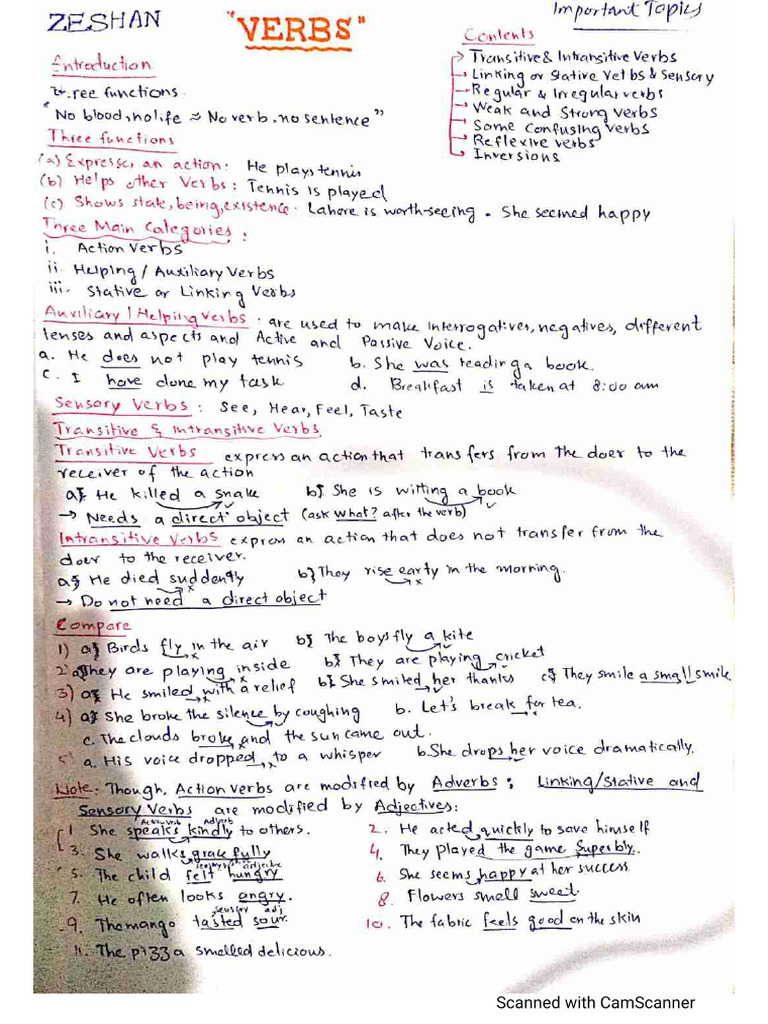 ZESHAN
"VERBS"
Important Topics
Contents
Transitive & Intransitive Verbs
Linking or Stative Verbs & Sensory
Regular & Irregular verbs
Weak and Strong verbs
Some Confusing verbs
Reflexive verbs
Inversions
Introduction
ree functions.
"No blood, no life ≈ No verb, no sentence"
Three functions
(a) Express, an action: He plays tennis
(b) Helps other Verbs: Tennis is played
(c) Shows state, being, existence. Lahore is worth-seeing. She seemed happy
Three Main Categories:
i. Action Verbs
ii. Helping / Auxiliary Verbs
iii. Stative or Linking Verbs
Auxiliary / Helping Verbs: are used to make interrogatives, negatives, different
tenses and aspects and Active and Passive Voice.
a. He does not play tennis b. She was reading a book.
c. I have done my task d. Breakfast is taken at 8:00 am
Sensory Verbs: See, Hear, Feel, Taste
Transitive & Intransitive Verbs
Transitive Verbs express an action that transfers from the doer to the
receiver of the action
a) He killed a snake b) She is writting a book
→ Needs a direct object (ask what? after the verb)
Intransitive Verbs express an action that does not transfer from the
doer to the receiver.
a) He died suddently b) They rise early in the morning.
→ Do not need a direct object
Compare
1) a) Birds fly in the air b) The boys fly a kite
2) a) They are playing inside b) They are playing cricket
3) a) He smiled with a relief b) She smiled her thanks c) They smile a small smile
4) a) She broke the silence by coughing b. Let's break for tea.
c. The clouds broke and the sun came out.
5) a. His voice dropped to a whisper b. She drops her voice dramatically.
Note: Though, Action verbs are modified by Adverbs; Linking/Stative and
Sensory Verbs are modified by Adjectives:
Action verb Adverb
1 She speaks kindly to others. 2. He acted quickly to save himself
3. She walks gracefully 4. They played the game Superbly.
sensory adjective
5. The child felt hungry 6. She seems happy at her success
7. He often looks angry. 8. Flowers smell sweet.
sensory adj
9. The mango tasted sour. 10. The fabric feels good on the skin
11. The pizza smelled delicious.
Scanned with CamScanner